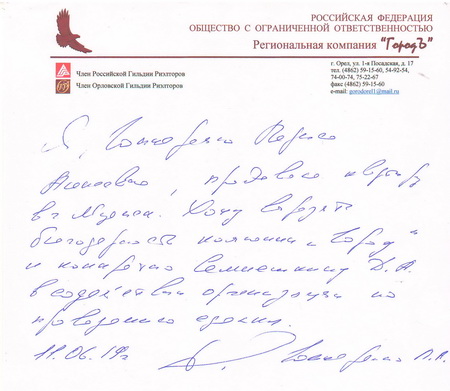 РОССИЙСКАЯ ФЕДЕРАЦИЯ
ОБЩЕСТВО С ОГРАНИЧЕННОЙ ОТВЕТСТВЕННОСТЬЮ
Региональная компания "ГородЪ"
Член Российской Гильдии Риэлторов
Член Орловской Гильдии Риэлторов
г. Орел, ул. 1-я Посадская, д. 17
тел. (4862) 59-15-60, 54-92-54,
74-00-74, 75-22-67
факс (4862) 59-15-60
e-mail: gorodorel1@mail.ru
Я,
, продавала квартиру
в г. Мценск. Хочу выразить
благодарность компании "Город"
и конкретно Д.А.
в содействии организации по
проведению сделки.
11.06.19г